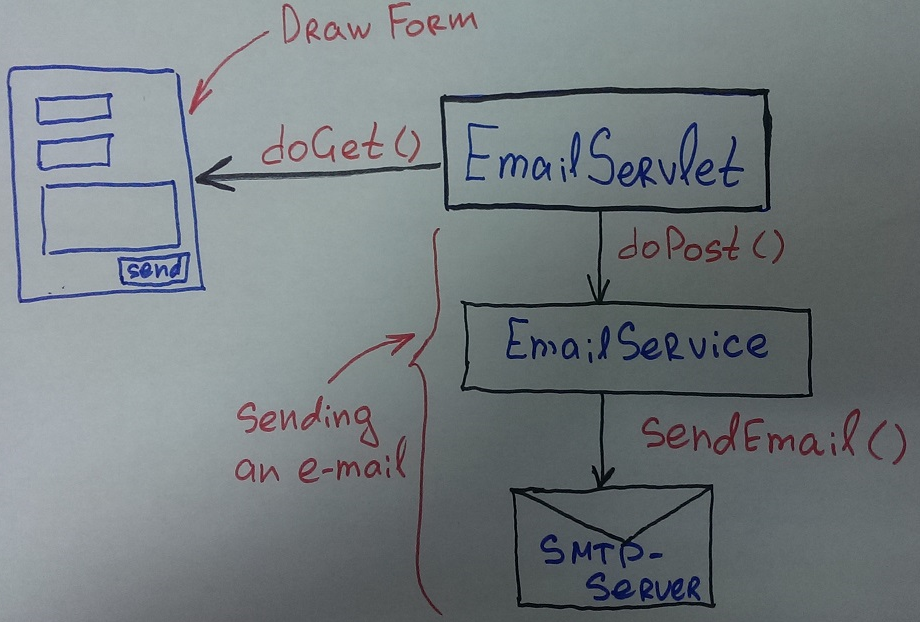 Draw Form
doGet()
EmailServlet
send
doPost()
EmailService
Sending
an e-mail
sendEmail()
SMTP-
SERVER